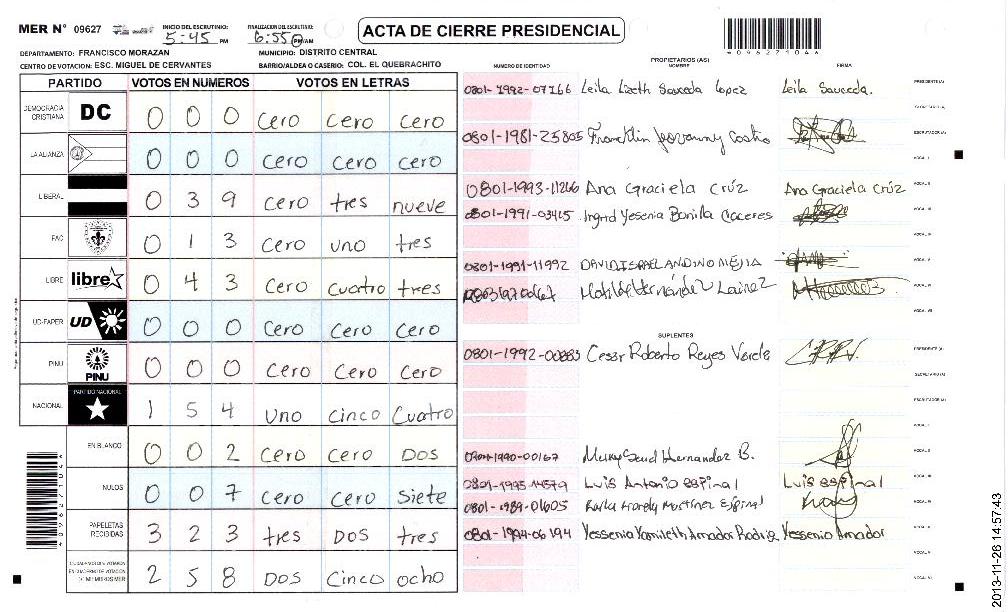 MER Nº 09627 INICIO DEL ESCRUTINIO: 5:45 PM FINALIZACION DEL ESCRUTINIO: 6:55 PM/AM ACTA DE CIERRE PRESIDENCIAL
DEPARTAMENTO: FRANCISCO MORAZAN MUNICIPIO: DISTRITO CENTRAL
CENTRO DE VOTACION: ESC. MIGUEL DE CERVANTES BARRIO/ALDEA O CASERIO: COL. EL QUEBRACHITO
PARTIDO VOTOS EN NUMEROS VOTOS EN LETRAS
DEMOCRACIA CRISTIANA DC 0 0 0 Cero Cero Cero
LA ALIANZA 0 0 0 Cero Cero Cero
LIBERAL 0 3 9 Cero tres nueve
FAC 0 1 3 Cero uno tres
LIBRE libre 0 4 3 Cero Cuatro tres
UD-FAPER UD 0 0 0 Cero Cero Cero
PINU PINU 0 0 0 Cero Cero Cero
NACIONAL PARTIDO NACIONAL 1 5 4 Uno Cinco Cuatro
EN BLANCO 0 0 2 Cero Cero DOS
NULOS 0 0 7 Cero Cero Siete
PAPELETAS RECIBIDAS 3 2 3 tres DOS tres
2 5 8 DOS Cinco ocho
NUMERO DE IDENTIDAD PROPIETARIOS (AS) NOMBRE FIRMA
0801-1992-07166 Leila Lizeth Sauceda Lopez Leila Sauceda. PRESIDENTE(A)
SECRETARIO(A)
0801-1981-25805 Franklin Jeovanny Castro ESCRUTADOR(A)
VOCAL I
0801-1993-11266 Ana Graciela Crúz Ana Graciela Crúz VOCAL II
0801-1991-03415 Ingrid Yesenia Bonilla Caceres VOCAL III
VOCAL IV
0801-1991-11992 DAVID ISRAEL ANDINO MEJIA VOCAL V
Matilde Hernández Lainez VOCAL VI
VOCAL VII
SUPLENTES
0801-1992-00883 Cesar Roberto Reyes Varela PRESIDENTE(A)
SECRETARIO(A)
ESCRUTADOR(A)
VOCAL I
Hernandez B. VOCAL II
Luis Antonio espinal Luis espinal VOCAL III
0801-1989-01605 Martinez Espinal VOCAL IV
0801-1994-06194 Yessenia Yamileth Amador Rodrig Yessenia Amador
VOCAL V
VOCAL VI
2013-11-26 14:57:43